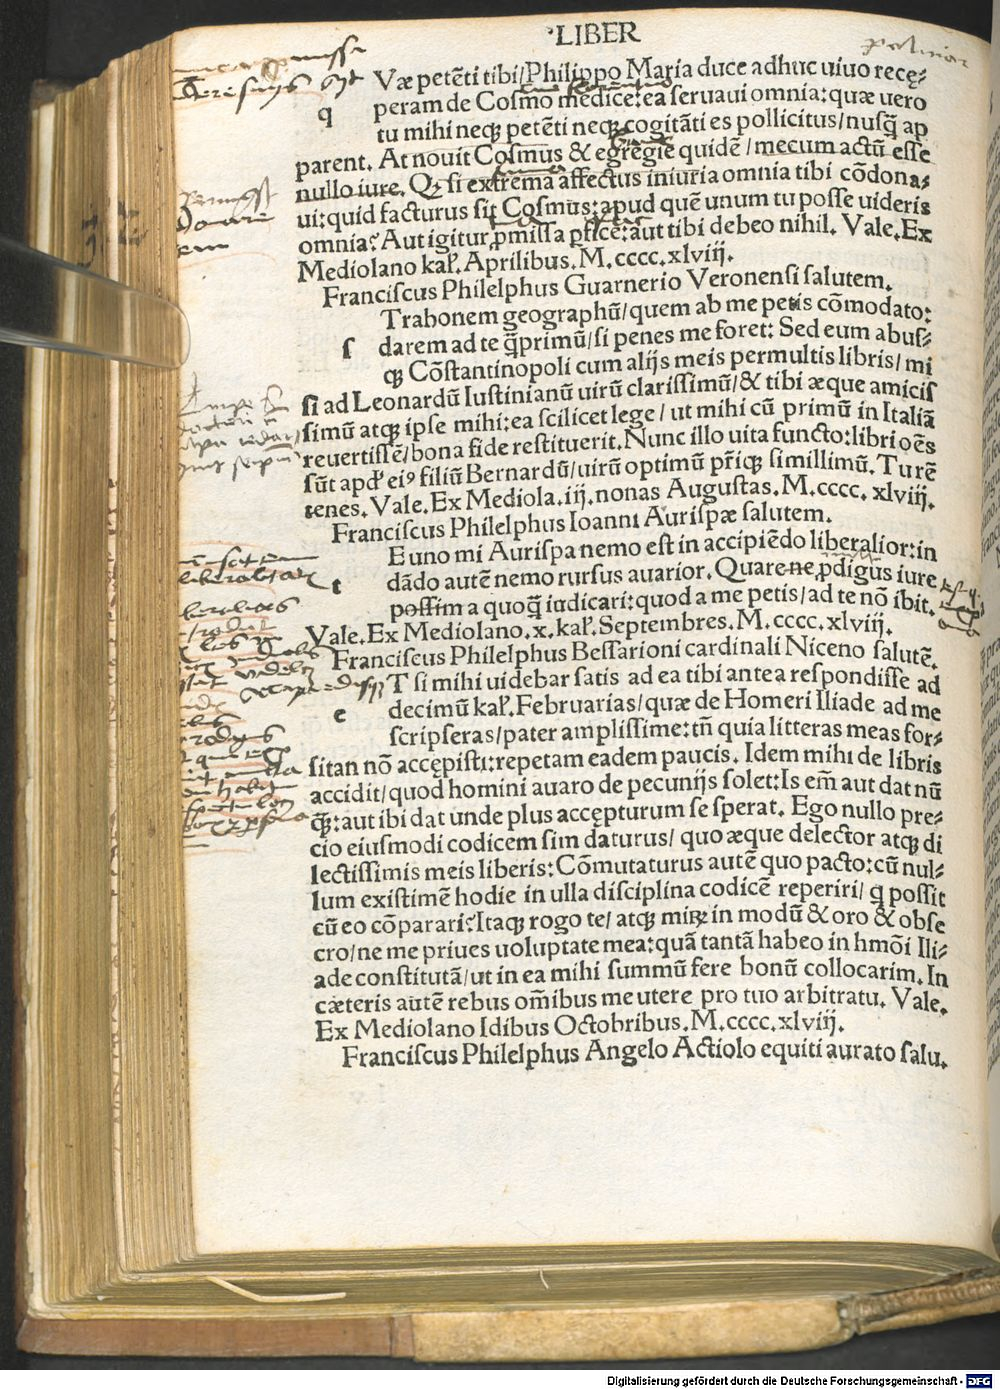 LIBER
q Væ petēti tibi/Philippo Maria duce adhuc uiuo recę⸗
peram de Cosmo medice:ea seruaui omnia:quæ uero
tu mihi neqꝫ petēti neqꝫ cogitāti es pollicitus/nusq̄ ap
parent. At nouit Cosmus & egregie quidē/mecum actū esse
nullo iure. Qꝫ si extrema affectus iniuria omnia tibi cōdona⸗
ui:quid facturus sit Cosmus:apud quē unum tu posse uideris
omnia? Aut igitur ꝓmissa ꝑfice:aut tibi debeo nihil. Vale. Ex
Mediolano kał. Aprilibus. M.cccc.xlviij.
Franciscus Philelphus Guarnerio Veronensi salutem.
s Trabonem geographū/quem ab me petis cōmodato:
darem ad te q̄primū/si penes me foret: Sed eum abus⸗
qꝫ Cōstantinopoli cum alijs meis permultis libris/mi
si ad Leonardū Iustinianū uirū clarissimū/& tibi æque amicis
simū atqꝫ ipse mihi:ea scilicet lege/ut mihi cū primū in Italiā
reuertissē/bona fide restituerit. Nunc illo uita functo:libri oēs
sūt apđ eiꝰ filiū Bernardū/uirū optimū pr̄iqꝫ simillimū. Tu rē
tenes. Vale. Ex Mediola.iij.nonas Augustas. M.cccc.xlviij.
Franciscus Philelphus Ioanni Aurispæ salutem.
t E uno mi Aurispa nemo est in accipiēdo liberalior:in
dādo autē nemo rursus auarior. Quare ne ꝓdigus iure
possim a quoq̄ iudicari:quod a me petis/ad te nō ibit.
Vale. Ex Mediolano.x.kał.Septembres. M.cccc.xlviij.
Franciscus Philelphus Bessarioni cardinali Niceno salutē.
e T si mihi uidebar satis ad ea tibi antea respondisse ad
decimū kał.Februarias/quæ de Homeri Iliade ad me
scripseras/pater amplissime:tn̄ quia litteras meas for⸗
sitan nō accepisti:repetam eadem paucis. Idem mihi de libris
accidit/quod homini auaro de pecunijs solet:Is em̄ aut dat nū
q̄ꝫ:aut ibi dat unde plus accepturum se sperat. Ego nullo pre⸗
cio eiusmodi codicem sim daturus/quo æque delector atqꝫ di
lectissimis meis liberis:Cōmutaturus autē quo pacto:cū nul⸗
lum existimē hodie in ulla disciplina codicē reperiri/q̇ possit
cū eo cōparari? Itaqꝫ rogo te/atqꝫ miꝝ in modū & oro & obse
cro/ne me priues uoluptate mea:quā tantā habeo in hmōi Ili⸗
ade constitutā/ut in ea mihi summū fere bonū collocarim. In
cæteris autē rebus om̄ibus me utere pro tuo arbitratu. Vale.
Ex Mediolano Idibus Octobribus. M.cccc.xlviij.
Franciscus Philelphus Angelo Actiolo equiti aurato salu.
Digitalisierung gefördert durch die Deutsche Forschungsgemeinschaft - DFG